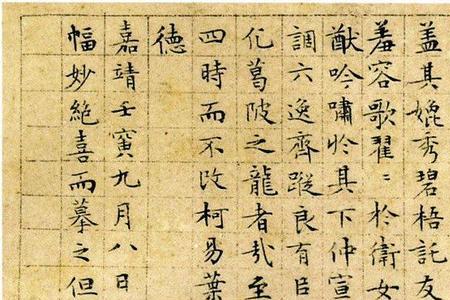 盖其媲秀碧梧託友
羞容歌翟〻於衛女
猷吟嘯於其下仲宣
調六逸齊蹤良有臣
化葛陂之龍者哉至
四時而不改柯易葉
德
嘉靖壬寅九月八日
幅妙絶喜而摹之但